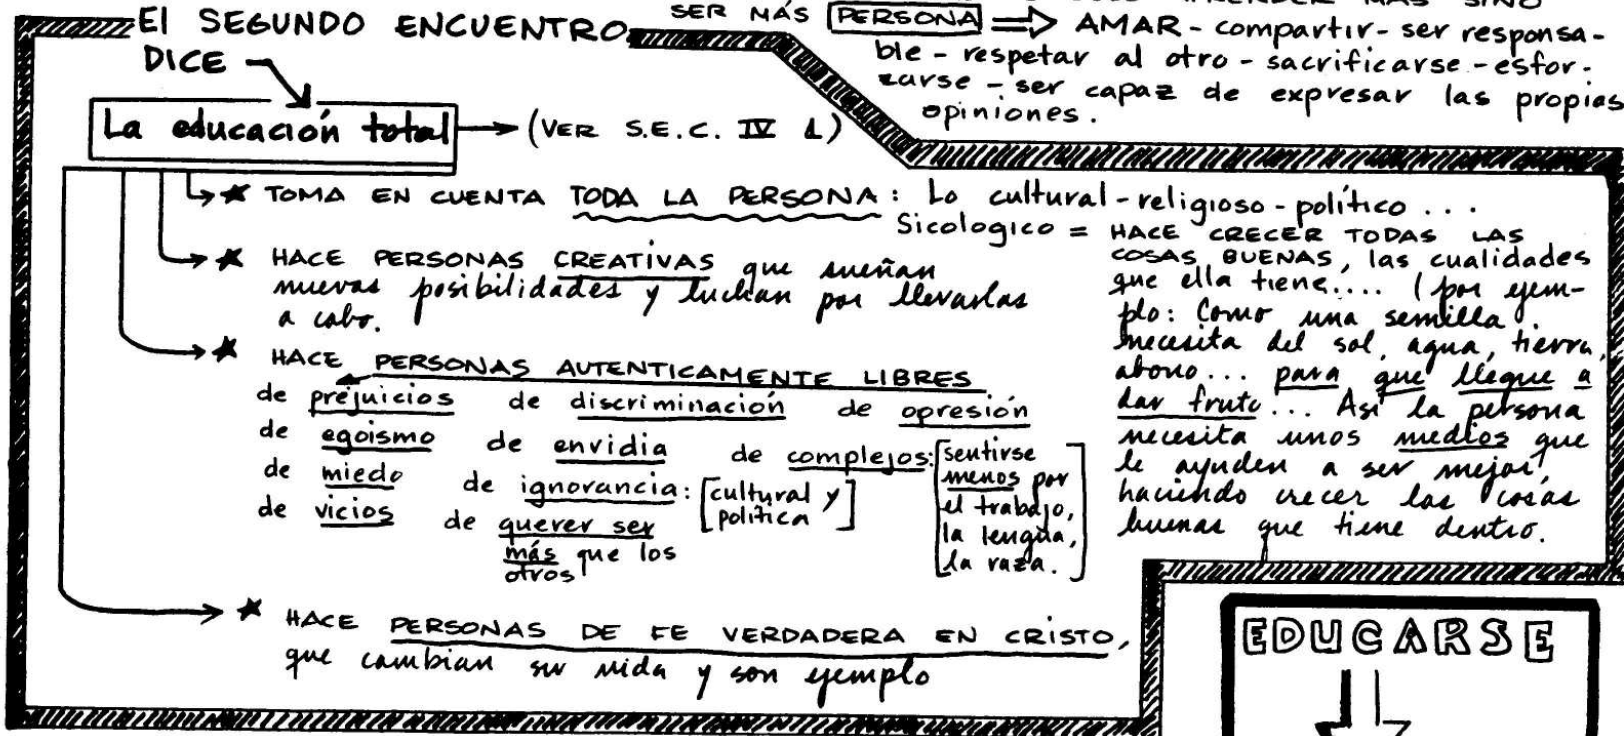 SER MÁS PERSONA ⇒ AMAR - compartir - ser responsa-
ble - respetar al otro - sacrificarse - esfor-
zarse - ser capaz de expresar las propias
opiniones.
El SEGUNDO ENCUENTRO
DICE
La educación total → (VER S.E.C. IV 1)
★ TOMA EN CUENTA TODA LA PERSONA: Lo cultural - religioso - político ...
Sicologico = HACE CRECER TODAS LAS
COSAS BUENAS, las cualidades
que ella tiene.... (por ejem-
plo: Como una semilla
necesita del sol, agua, tierra,
abono... para que llegue a
dar fruto... Asi la persona
necesita unos medios que
le ayuden a ser mejor,
haciendo crecer las cosas
buenas que tiene dentro.
★ HACE PERSONAS CREATIVAS que sueñan
nuevas posibilidades y luchan por llevarlas
a cabo.
★ HACE PERSONAS AUTENTICAMENTE LIBRES
de prejuicios de discriminación de opresión
de egoismo de envidia de complejos: [sentirse
menos por
el trabajo,
la lengua,
la raza.]
de miedo de ignorancia: [cultural y
política]
de vicios de querer ser
más que los
otros
★ HACE PERSONAS DE FE VERDADERA EN CRISTO,
que cambian su vida y son ejemplo
EDUCARSE